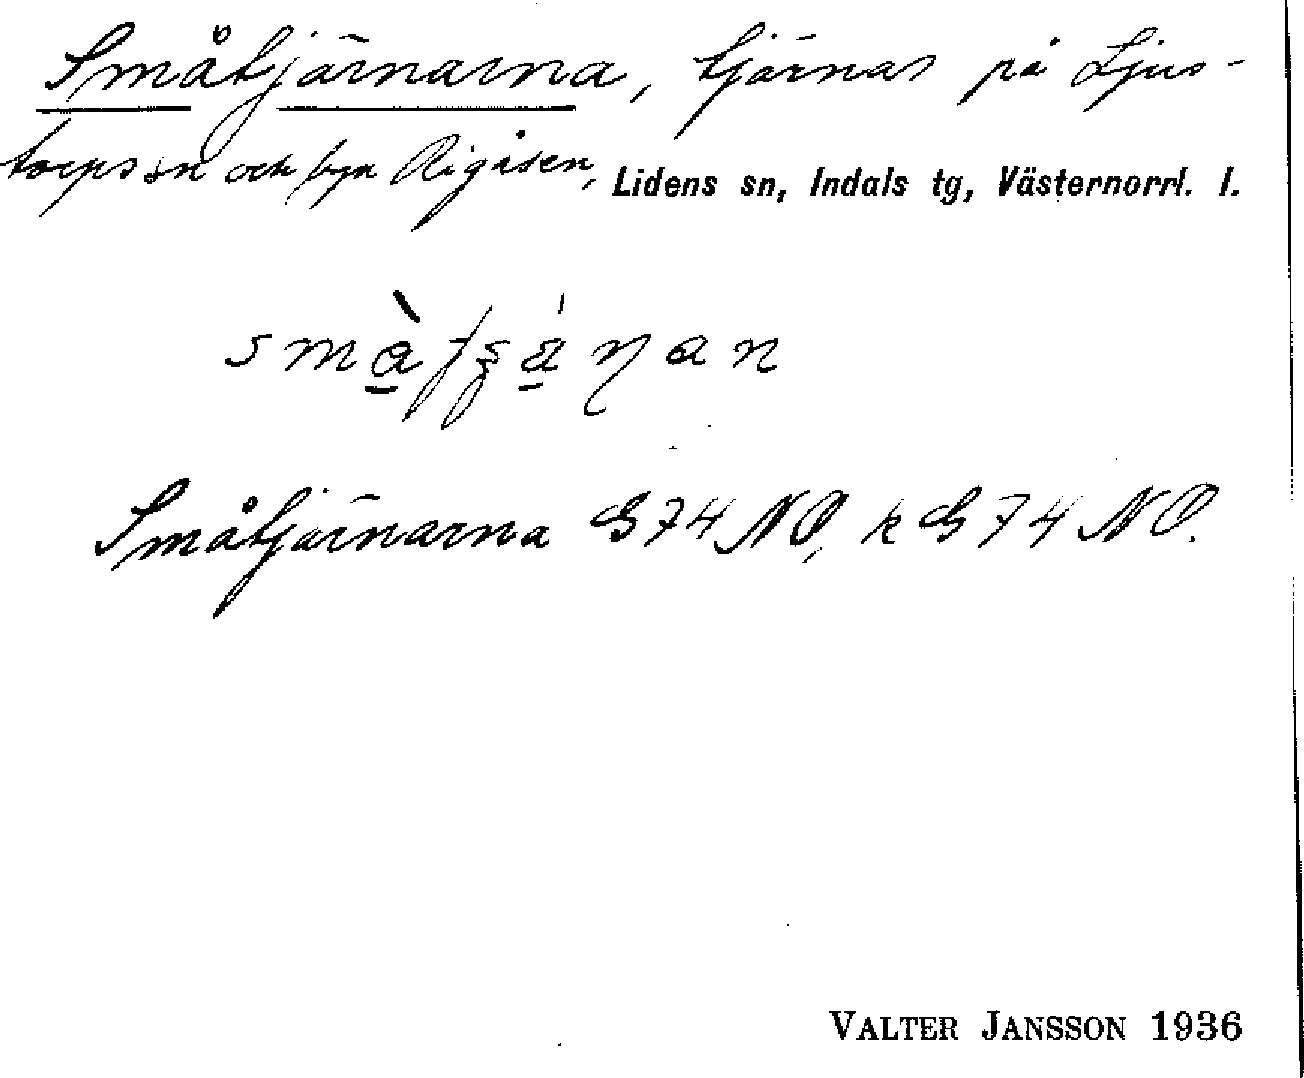 Småtjärnarna, tjärnar på Ljus-
torps sn och byn Rigåsen, Lidens sn, Indals tg, Västernorrl. l.
Småtjärnarna G74 NO, k G74 NO.
VALTER JANSSON 1936